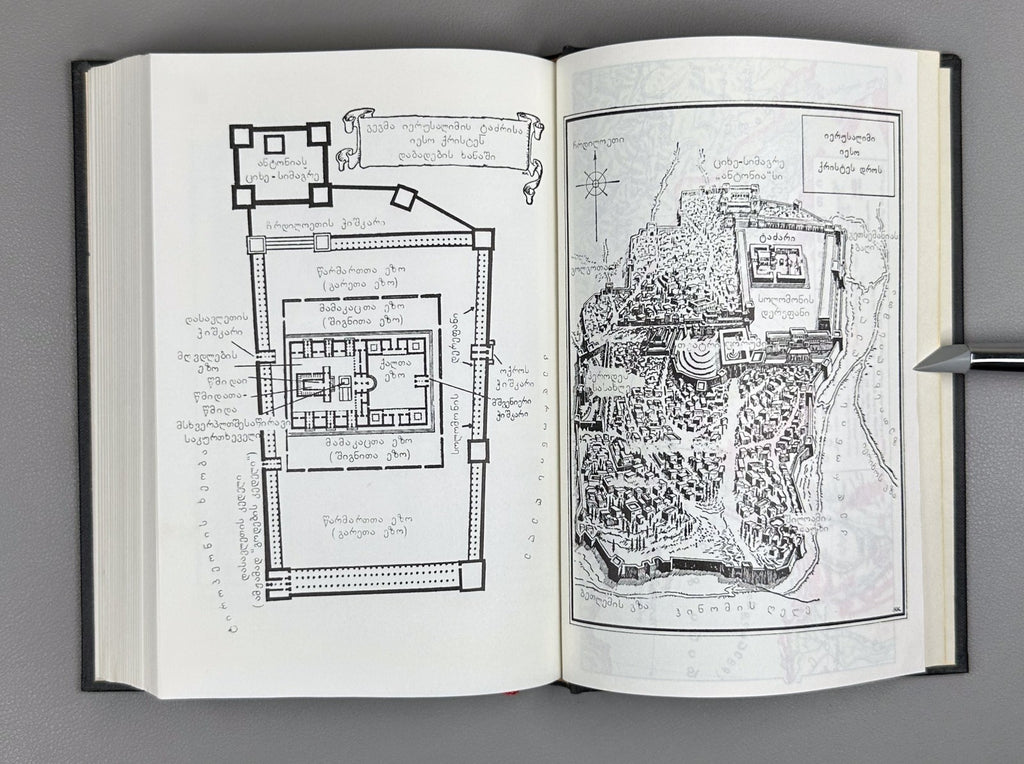 გეგმა იერუსალიმის ტაძრისა
იესო ქრისტეს
დაბადების ხანაში
ანტონიას
ციხე-სიმაგრე
ჩრდილოეთის ჭიშკარი
წარმართთა ეზო
(გარეთა ეზო)
მამაკაცთა ეზო
(შიგნითა ეზო)
დასავლეთის
ჭიშკარი
მღვდლების
ეზო
წმიდაი
წმიდათა-
წმიდა
მსხვერპლთშესაწირავი
საკურთხეველი
ქალთა
ეზო
ოქროს
ჭიშკარი
მშვენიერი
ჭიშკარი
სოლომონის დერეფანი
მამაკაცთა ეზო
(შიგნითა ეზო)
წარმართთა ეზო
(გარეთა ეზო)
დასავლეთის კედელი
იერუსალიმი
იესო
ქრისტეს დროს
ჩრდილოეთი
ციხე-სიმაგრე
„ანტონია“სი
ტაძარი
სოლომონის
დერეფანი
ბეთლემის გზა
ჰინომის ღელე